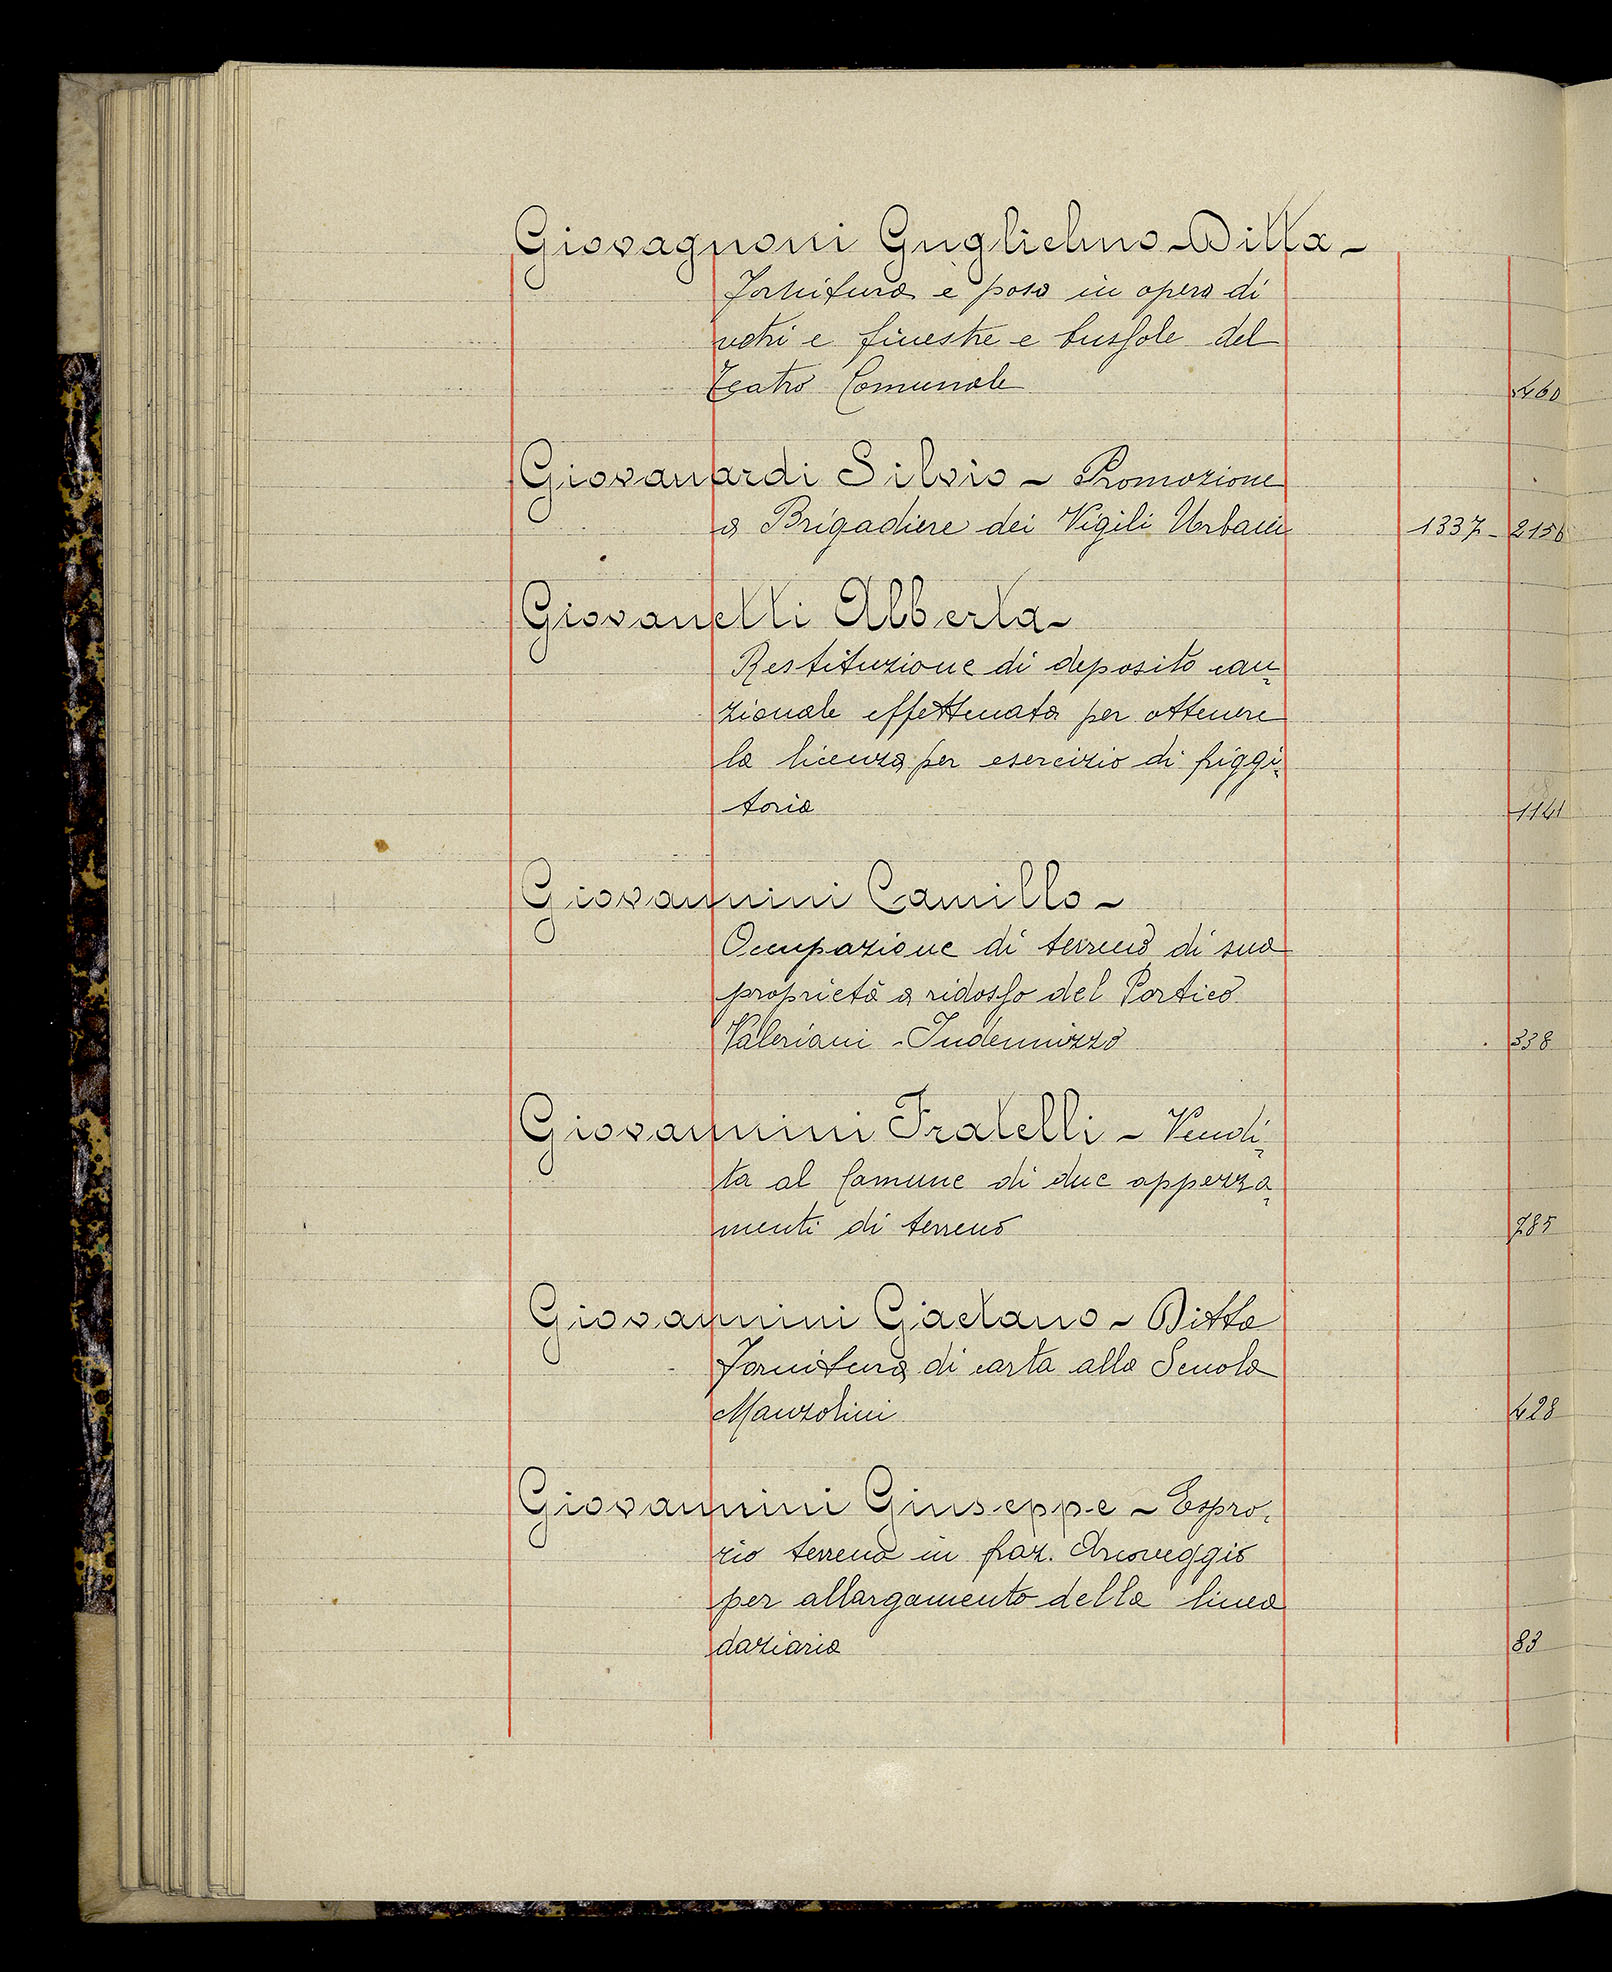 Giovagnoni Guglielmo - Ditta -
Fornitura e posa in opera di
vetri e finestre e bussole del
Teatro Comunale 460
Giovanardi Silvio - Promozione
a Brigadiere dei Vigili Urbani 1337 - 2156
Giovanetti Alberta -
Restituzione di deposito cau-
zionale effettuata per ottenere
la licenza per esercizio di friggi-
toria 1141
Giovannini Camillo -
Occupazione di terreno di sua
proprietà a ridosso del Portico
Valeriani - Indennizzo 338
Giovannini Fratelli - Vendi-
ta al Comune di due appezza-
menti di terreno 785
Giovannini Gaetano - Ditta
Fornitura di carta alla Scuola
Manzolini 428
Giovannini Giuseppe - Espro-
rio terreno in fraz. Arcoveggio
per allargamento della linea
daziaria 83